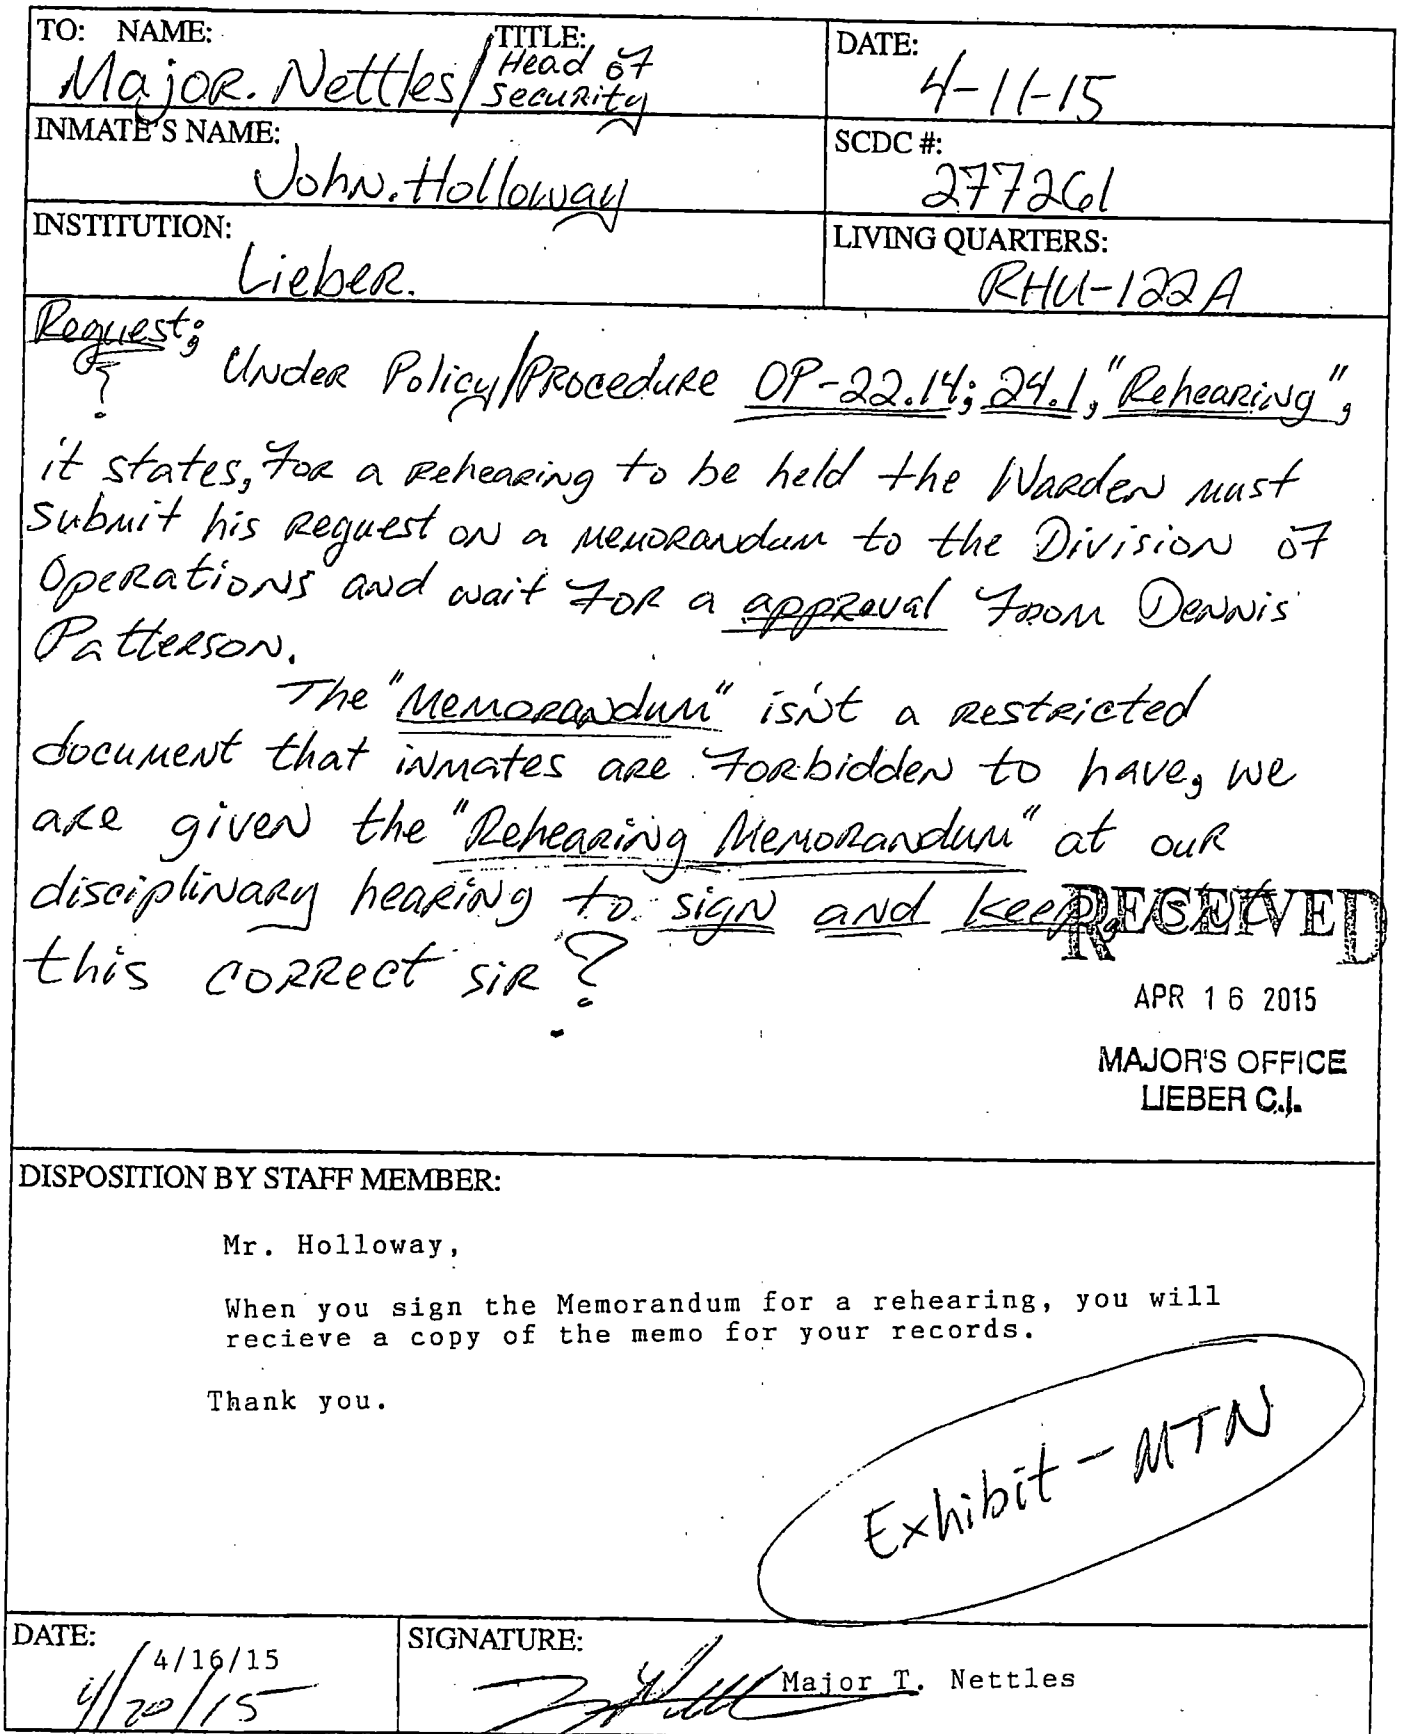 TO: NAME: TITLE: DATE:
Major. Nettles/Head of Security 4-11-15
INMATE'S NAME: SCDC #:
John. Holloway 277261
INSTITUTION: LIVING QUARTERS:
Lieber. RHU-122A
Request;
? Under Policy/Procedure OP-22.14; 24.1, "Rehearing",
it states, for a rehearing to be held the Warden must
submit his request on a memorandum to the Division of
Operations and wait for a appreval from Dennis
Patterson.
The "Memorandum" isn't a restricted
document that inmates are forbidden to have, we
are given the "Rehearing Memorandum" at our
disciplinary hearing to sign and keep, isn't
this correct sir?
RECEIVED
APR 16 2015
MAJOR'S OFFICE
LIEBER C.I.
DISPOSITION BY STAFF MEMBER:
Mr. Holloway,
When you sign the Memorandum for a rehearing, you will
recieve a copy of the memo for your records.
Thank you.
Exhibit - MTN
DATE: SIGNATURE:
4/16/15
4/20/15 Major T. Nettles